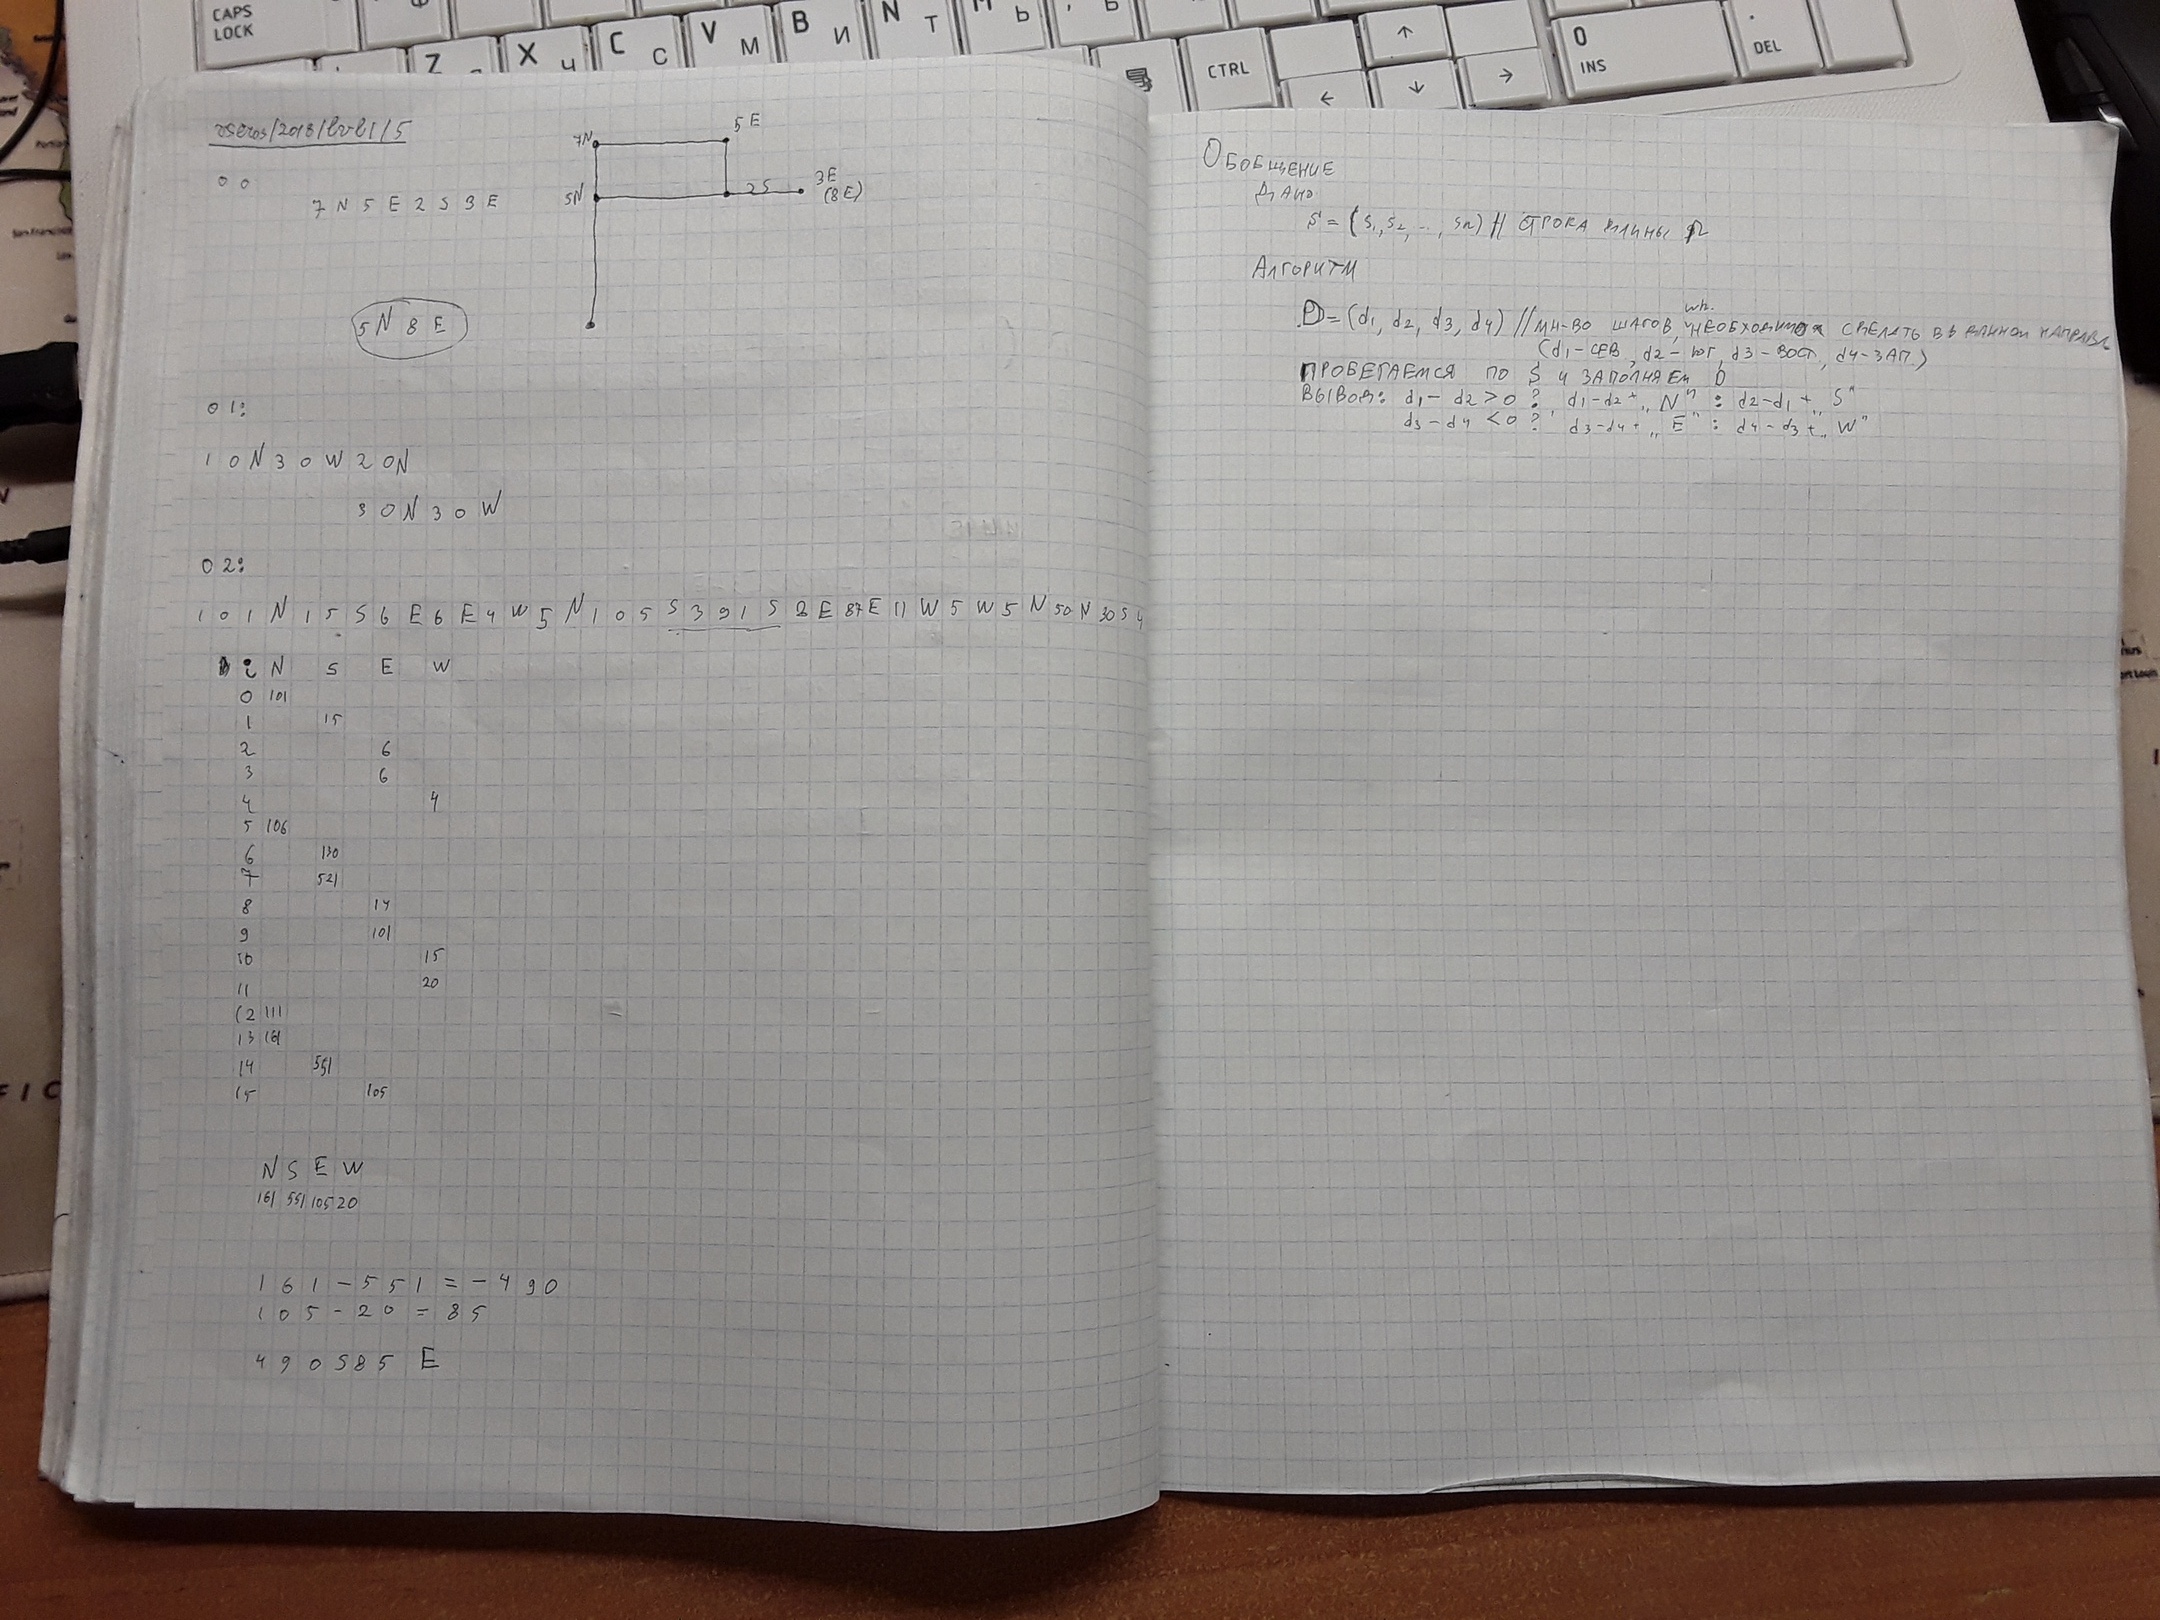 CAPS
LOCK
Z
X Ч
C С
V М
B И
N Т
Ь
CTRL
↑
←
↓
→
0
INS
.
DEL
vseros/2018/lvl1/5
00
7N5E2S3E
7N
5E
5N
2S
3E
(8E)
5N8E
01:
10N30W20N
30N30W
02:
101N15S6E6E4W5N105S391S8E87E11W5W5N50N30S4
i N S E W
0 101
1 15
2 6
3 6
4 4
5 106
6 130
7 521
8 14
9 101
10 15
11 20
12 111
13 161
14 551
15 105
N S E W
161 551 105 20
161-551=-490
105-20=85
490S85E
ОБОБЩЕНИЕ
ДАНО
S = (s1, s2, .., sn) // СТРОКА ДЛИНЫ n
АЛГОРИТМ
D = (d1, d2, d3, d4) // МН-ВО ШАГОВ, НЕОБХОДИМО СДЕЛАТЬ В ДАННОМ НАПРАВЛ
(d1-СЕВ, d2-ЮГ, d3-ВОСТ, d4-ЗАП.)
ПРОБЕГАЕМСЯ ПО S И ЗАПОЛНЯЕМ D
ВЫВОД: d1-d2>0 ? d1-d2+„N" : d2-d1+„S"
d3-d4<0 ? d3-d4+„E" : d4-d3+„W"